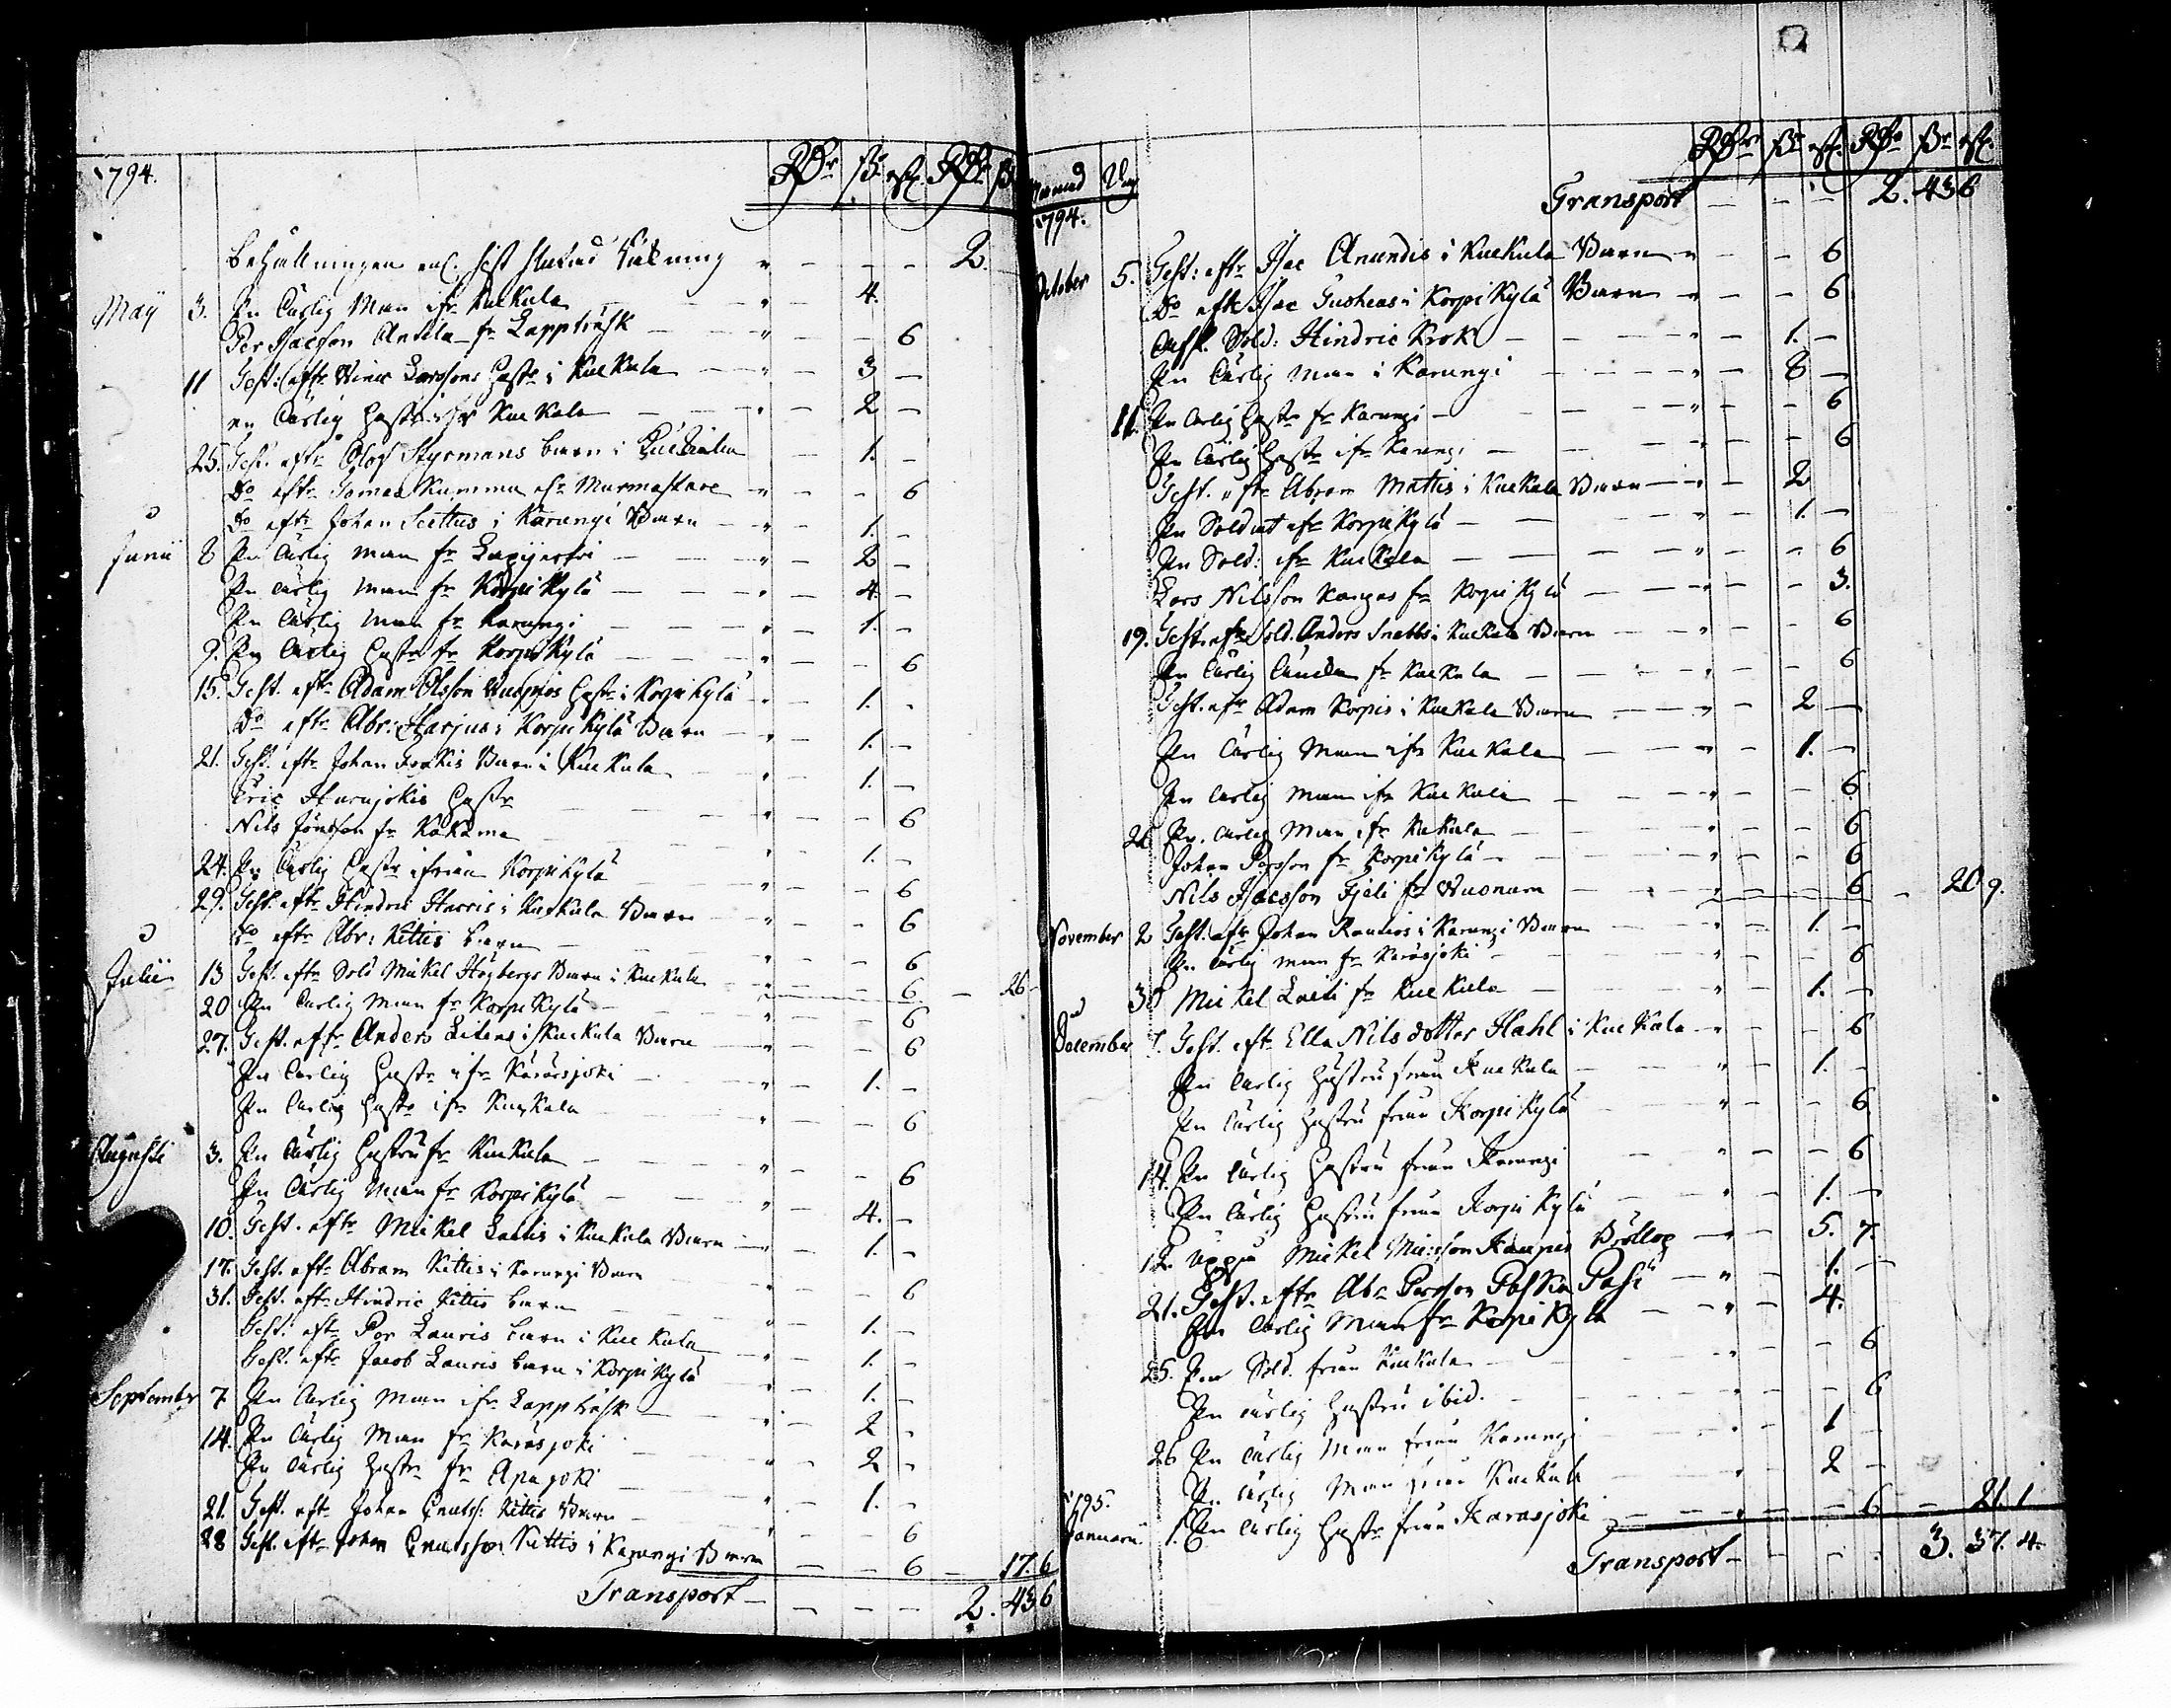 1794. RDr ß. rst. RDr ß
Behållningen enl. sist slutad Räkning " - - - 2.
Maij 3. En Ärlig Man ifr Kuckula " - 4.
Per Isacson Anula fr Lappträsk " - - 6
11 Test: eftr Larssons Hustr i Kuckula " - 3 -
en Ärlig Hustr ifr Kuckula " - 2 -
25. Test. eftr Olof Styrmans barn i - 1. -
Do eftr Tomas Kumma " - - 6
Do eftr Johan i Karungi Barn " - 1. -
Junii 8 En Ärlig man fr " - 2 -
En ärlig man fr Korpikylä " - 4. -
En Ärlig man fr Karungi " - 1. -
9. En Ärlig Hustr fr Korpikylä " - - 6
15. Test. eftr Adam Olsson Hustr i Korpikylä " - 1. -
Do eftr Abr: Harjus i Korpikylä Barn " - 1. -
21. Test. eftr Johan Barn i Kuckula " - 1. -
Eric Hustr " - - 6
Nils Jönsson fr Kakama " - 1. -
24. En Ärlig Hustr ifrån Korpikylä " - - 6
29. Test. eftr Hindric Harris i Kuckula Barn " - - 6
Do eftr Abr: Kittis barn " - - 6
Julii 13 Test. eftr Sold Mickel Högbergs Barn i Kuckula " - - 6 - 26 -
20 En Ärlig Man fr Korpikylä " - - 6
27. Test. eftr Anders i Kuckula Barn " - - 6
En Ärlig Hustr ifr Karasjoki " - 1. -
En Ärlig Hustr ifr Kuckula " - - 6
Augusti 3. En Ärlig Hustru fr Kuckula " - - 6
En Ärlig Man fr Korpikylä " - 4. -
10. Test. eftr Mickel Laitis i Kuckula Barn " - 1. -
17. Test. eftr Abram Kittis i Karungi Barn " - - 6
31. Test. eftr Hindric Kittis barn " - 1. -
Test. eftr Per Lauris barn i Kuckula " - 1. -
Test. eftr Jacob Lauris barn i Korpikylä " - 1. -
September 7. En Ärlig Man ifr Lappträsk " - 2 -
14. En Ärlig Man fr Karasjoki " - 2 -
En Ärlig Hustr fr Apajoki " - 1. -
21. Test. eftr Johan Kittis Barn " - - 6
28 Test. eftr Johan Kittis i Karungi Barn - - 6 - 17. 6
Transport - - - - 2. 43 6
Månad Dag RDr ßr rst. RDr ßr rst.
1794.
Transport - - - 2. 43 6
October 5. Test: eftr Isac Anundis i Kuckula Barn " - - 6
Do eftr Isac i Korpikylä Barn " - - 6
Sold: Hindric Krok " - 1. -
En Ärlig man i Karungi " - 8 -
11. En Ärlig Hustr fr Karungi " - - 6
En Ärlig Hustr ifr Karungi " - - 6
Test. eftr Abram Mattis i Kuckula Barn " - 2
En Soldat efr Korpikylä " - 1. -
En Sold: ifr Kuckula " - - 6
Lars Nilsson Kangas fr Korpikylä " - - 3.
19. Test. eftr Sold. Anders Snabbs i Kuckula Barn " - - 6
En Ärlig fr Kuckula " - - 6
Test. eftr Adam Korpis i Kuckula Barn " - 2 -
En Ärlig Man ifr Kuckula " - 1. -
En Ärlig man ifr Kuckula " - - 6
26 En Ärlig Man ifr Kuckula " - - 6
Johan Persson fr Korpikylä " - - 6
Nils Isacsson fr Vuonum " - - 6 - 20 9.
November 2 Test. eftr Johan Rautios i Karungi Barn " - 1. -
En Ärlig man fr Karasjoki " - - 6
30 Mickel Laiti fr Kuckula " - 1. -
December 7. Test. eftr Ella Nilsdotter Hahl i Kuckula " - - 6
En Ärlig Hustru från Kuckula " - 1. -
En Ärlig Hustru från Korpikylä " - - 6
14. En Ärlig Hustru från Karungi " - - 6
En Ärlig Hustru från Korpikylä " - 1. -
Uppå Mickel Kaupis Bröllop " - 5. 7.
21. Test. eftr Abr Persson " - 1. -
En Ärlig Man fr Korpikylä " - 4.
25. En Sold. från Kuckula " - - 6
En Ärlig Hustru ibid. " - - 6
26 En Ärlig Man från Karungi " - 1 -
En Ärlig Man från Kuckula " - 2 -
1795.
Januarii 1. En Ärlig Hustr från Karasjoki " - - 6 - 21. 1
Transport - - - - 3. 37. 4.